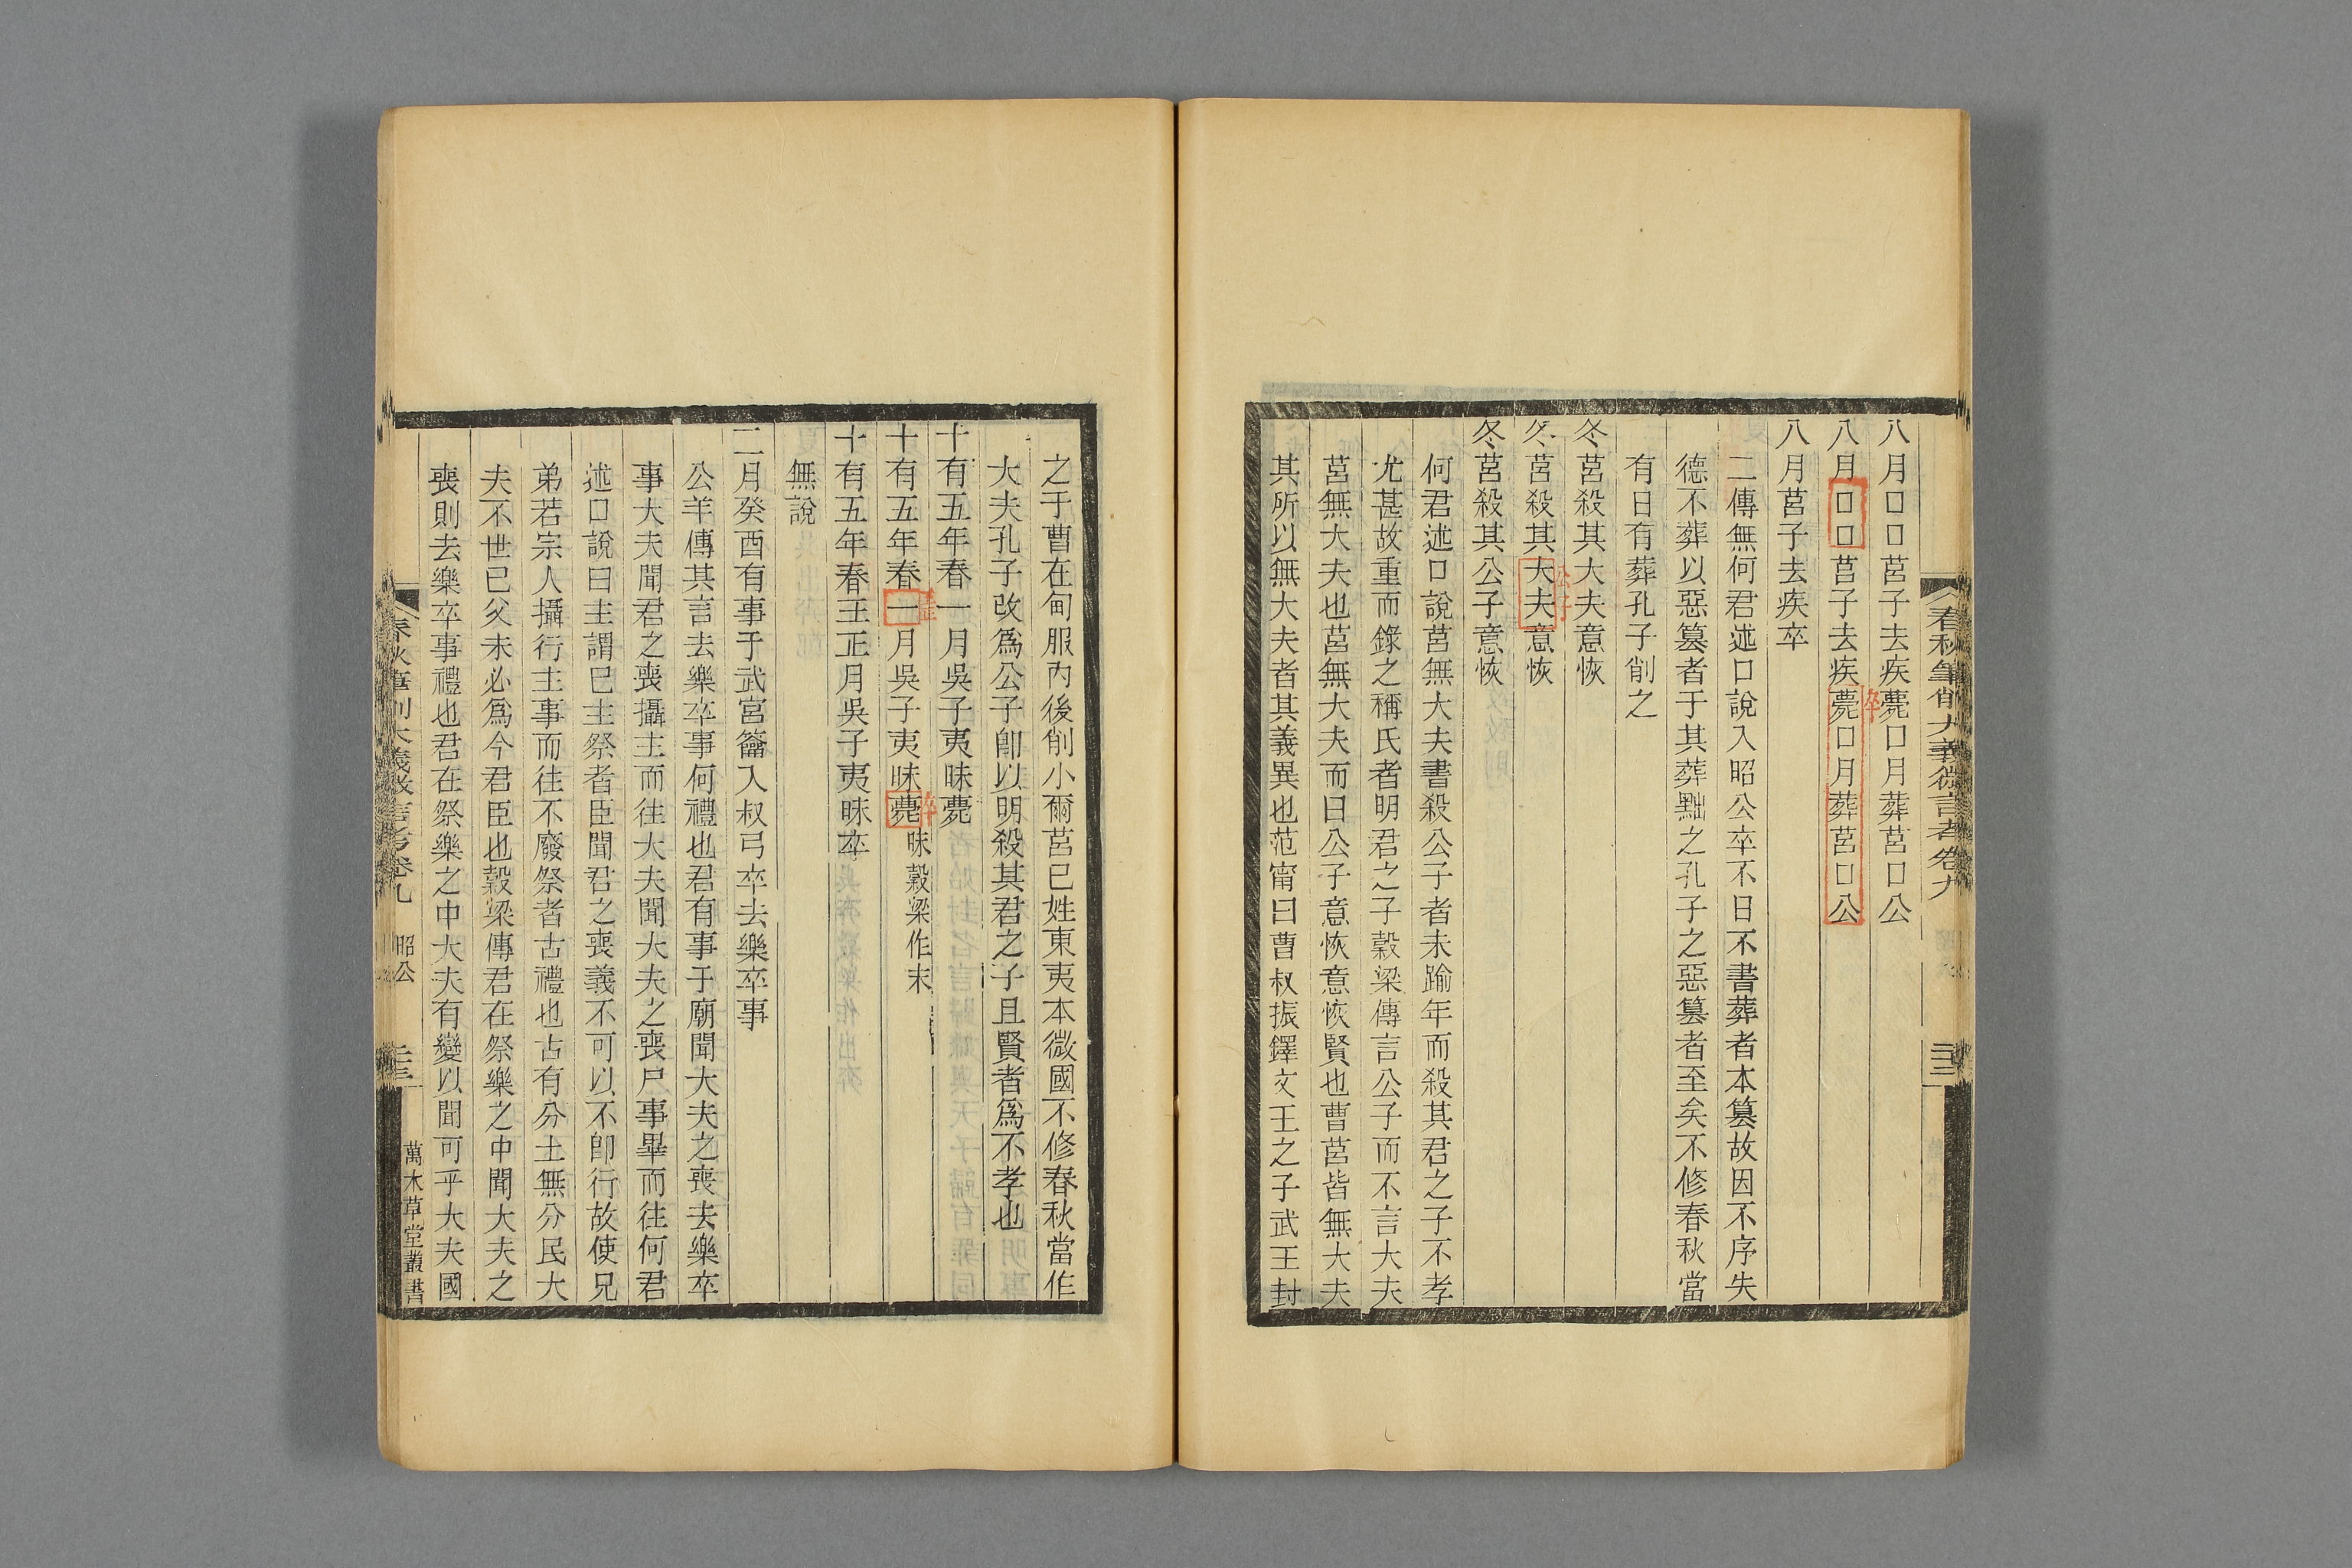 春秋筆削大義微言考卷九
八月□□莒子去疾薨□月葬莒□公
八月□□莒子去疾薨□月葬莒□公
卒
八月莒子去疾卒
二傳無何君述口說入昭公卒不日不書葬者本篡故因不序失
德不葬以惡篡者于其葬黜之孔子之惡篡者至矣不修春秋當
有日有葬孔子削之
冬莒殺其大夫意恢
冬莒殺其大夫意恢
公子
冬莒殺其公子意恢
何君述口說莒無大夫書殺公子者未踰年而殺其君之子不孝
尤甚故重而錄之稱氏者明君之子穀梁傳言公子而不言大夫
莒無大夫也莒無大夫而曰公子意恢意恢賢也曹莒皆無大夫
其所以無大夫者其義異也范甯曰曹叔振鐸文王之子武王封
之于曹在甸服內後削小爾莒已姓東夷本微國不修春秋當作
大夫孔子改爲公子卽以明殺其君之子且賢者爲不孝也
十有五年春一月吳子夷昧薨
十有五年春一月吳子夷昧薨昧穀梁作末
王正
卒
十有五年春王正月吳子夷昧卒
無說
二月癸酉有事于武宮籥入叔弓卒去樂卒事
公羊傳其言去樂卒事何禮也君有事于廟聞大夫之喪去樂卒
事大夫聞君之喪攝主而往大夫聞大夫之喪尸事畢而往何君
述口說曰主謂已主祭者臣聞君之喪義不可以不卽行故使兄
弟若宗人攝行主事而往不廢祭者古禮也古有分土無分民大
夫不世已父未必爲今君臣也穀梁傳君在祭樂之中聞大夫之
喪則去樂卒事禮也君在祭樂之中大夫有變以聞可乎大夫國
春秋筆削大義微言考卷九 昭公
萬木草堂叢書